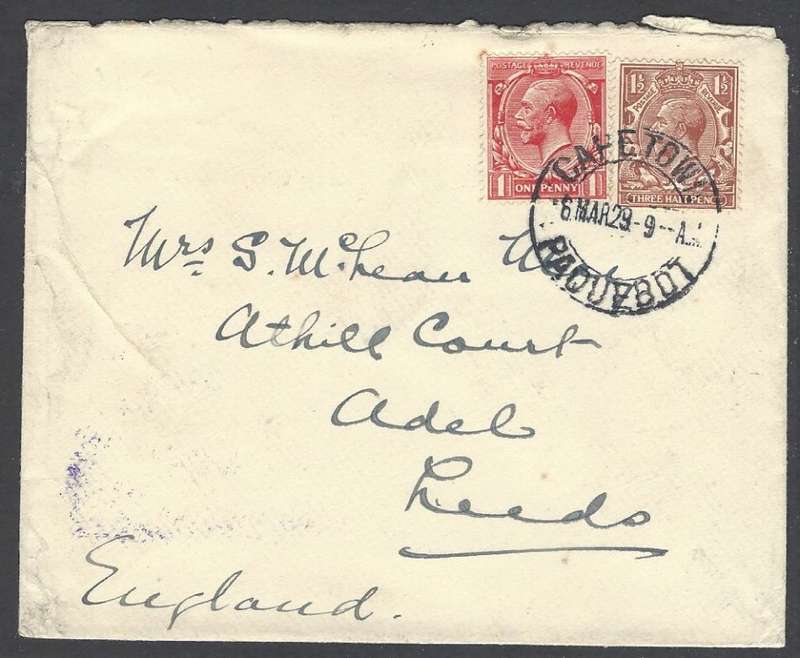 POSTAGE REVENUE
1 ONE PENNY 1
1½ 1½
POSTAGE REVENUE
THREE HALFPENCE
CAPE TOWN
6 MAR 29 - 9 - A.M
PAQUEBOT
Mrs S. McLean
Athill Court
Adel
Leeds
England.